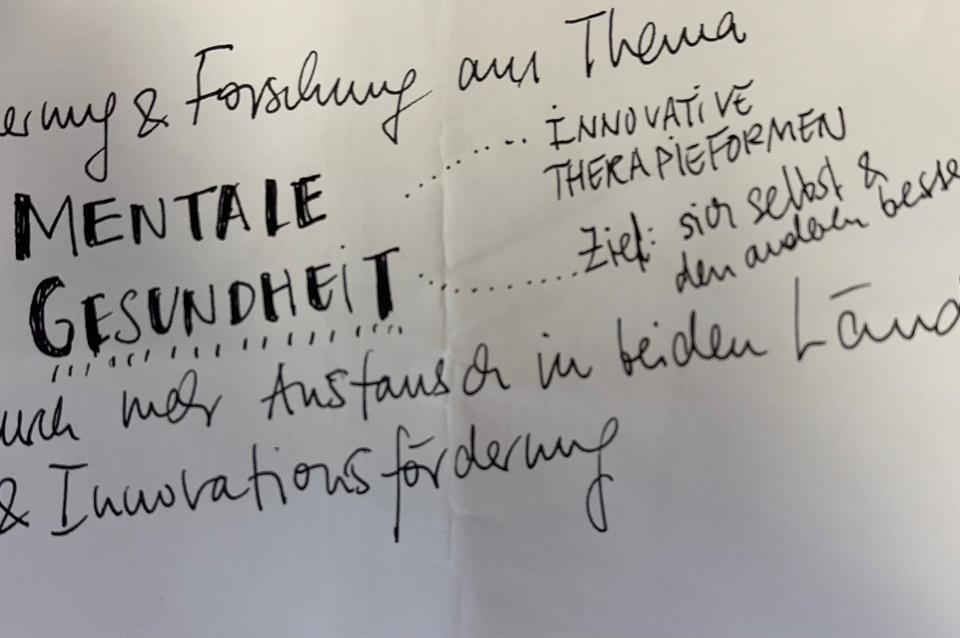 erung & Forschung zum Thema
MENTALE
GESUNDHEIT
INNOVATIVE
THERAPIEFORMEN
Ziel: sich selbst &
den anderen besse
urch mehr Austausch in beiden Länd
& Innovationsförderung